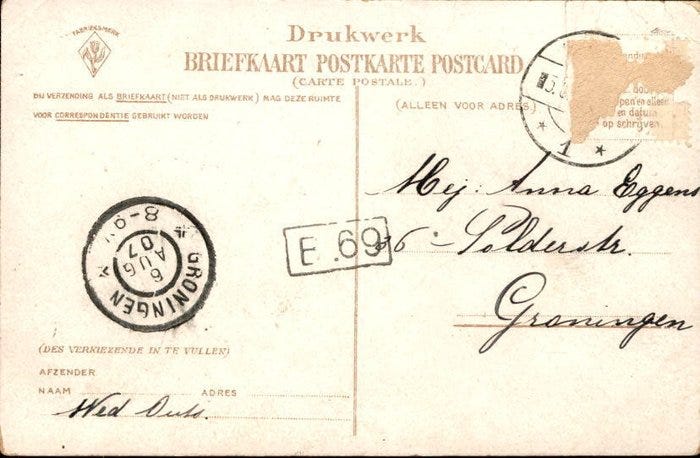 FABRIEKSMERK
Drukwerk
BRIEFKAART POSTKARTE POSTCARD
(CARTE POSTALE.)
BIJ VERZENDING ALS BRIEFKAART (NIET ALS DRUKWERK) MAG DEZE RUIMTE
VOOR CORRESPONDENTIE GEBRUIKT WORDEN
(ALLEEN VOOR ADRES)
en datum
op schrijven.
1
Mej: Anna Eggens
36 Solderstr.
Groningen
B.69
GRONINGEN
8-9
6
AUG
07
(DES VERKIEZENDE IN TE VULLEN)
AFZENDER
NAAM ADRES
Wed